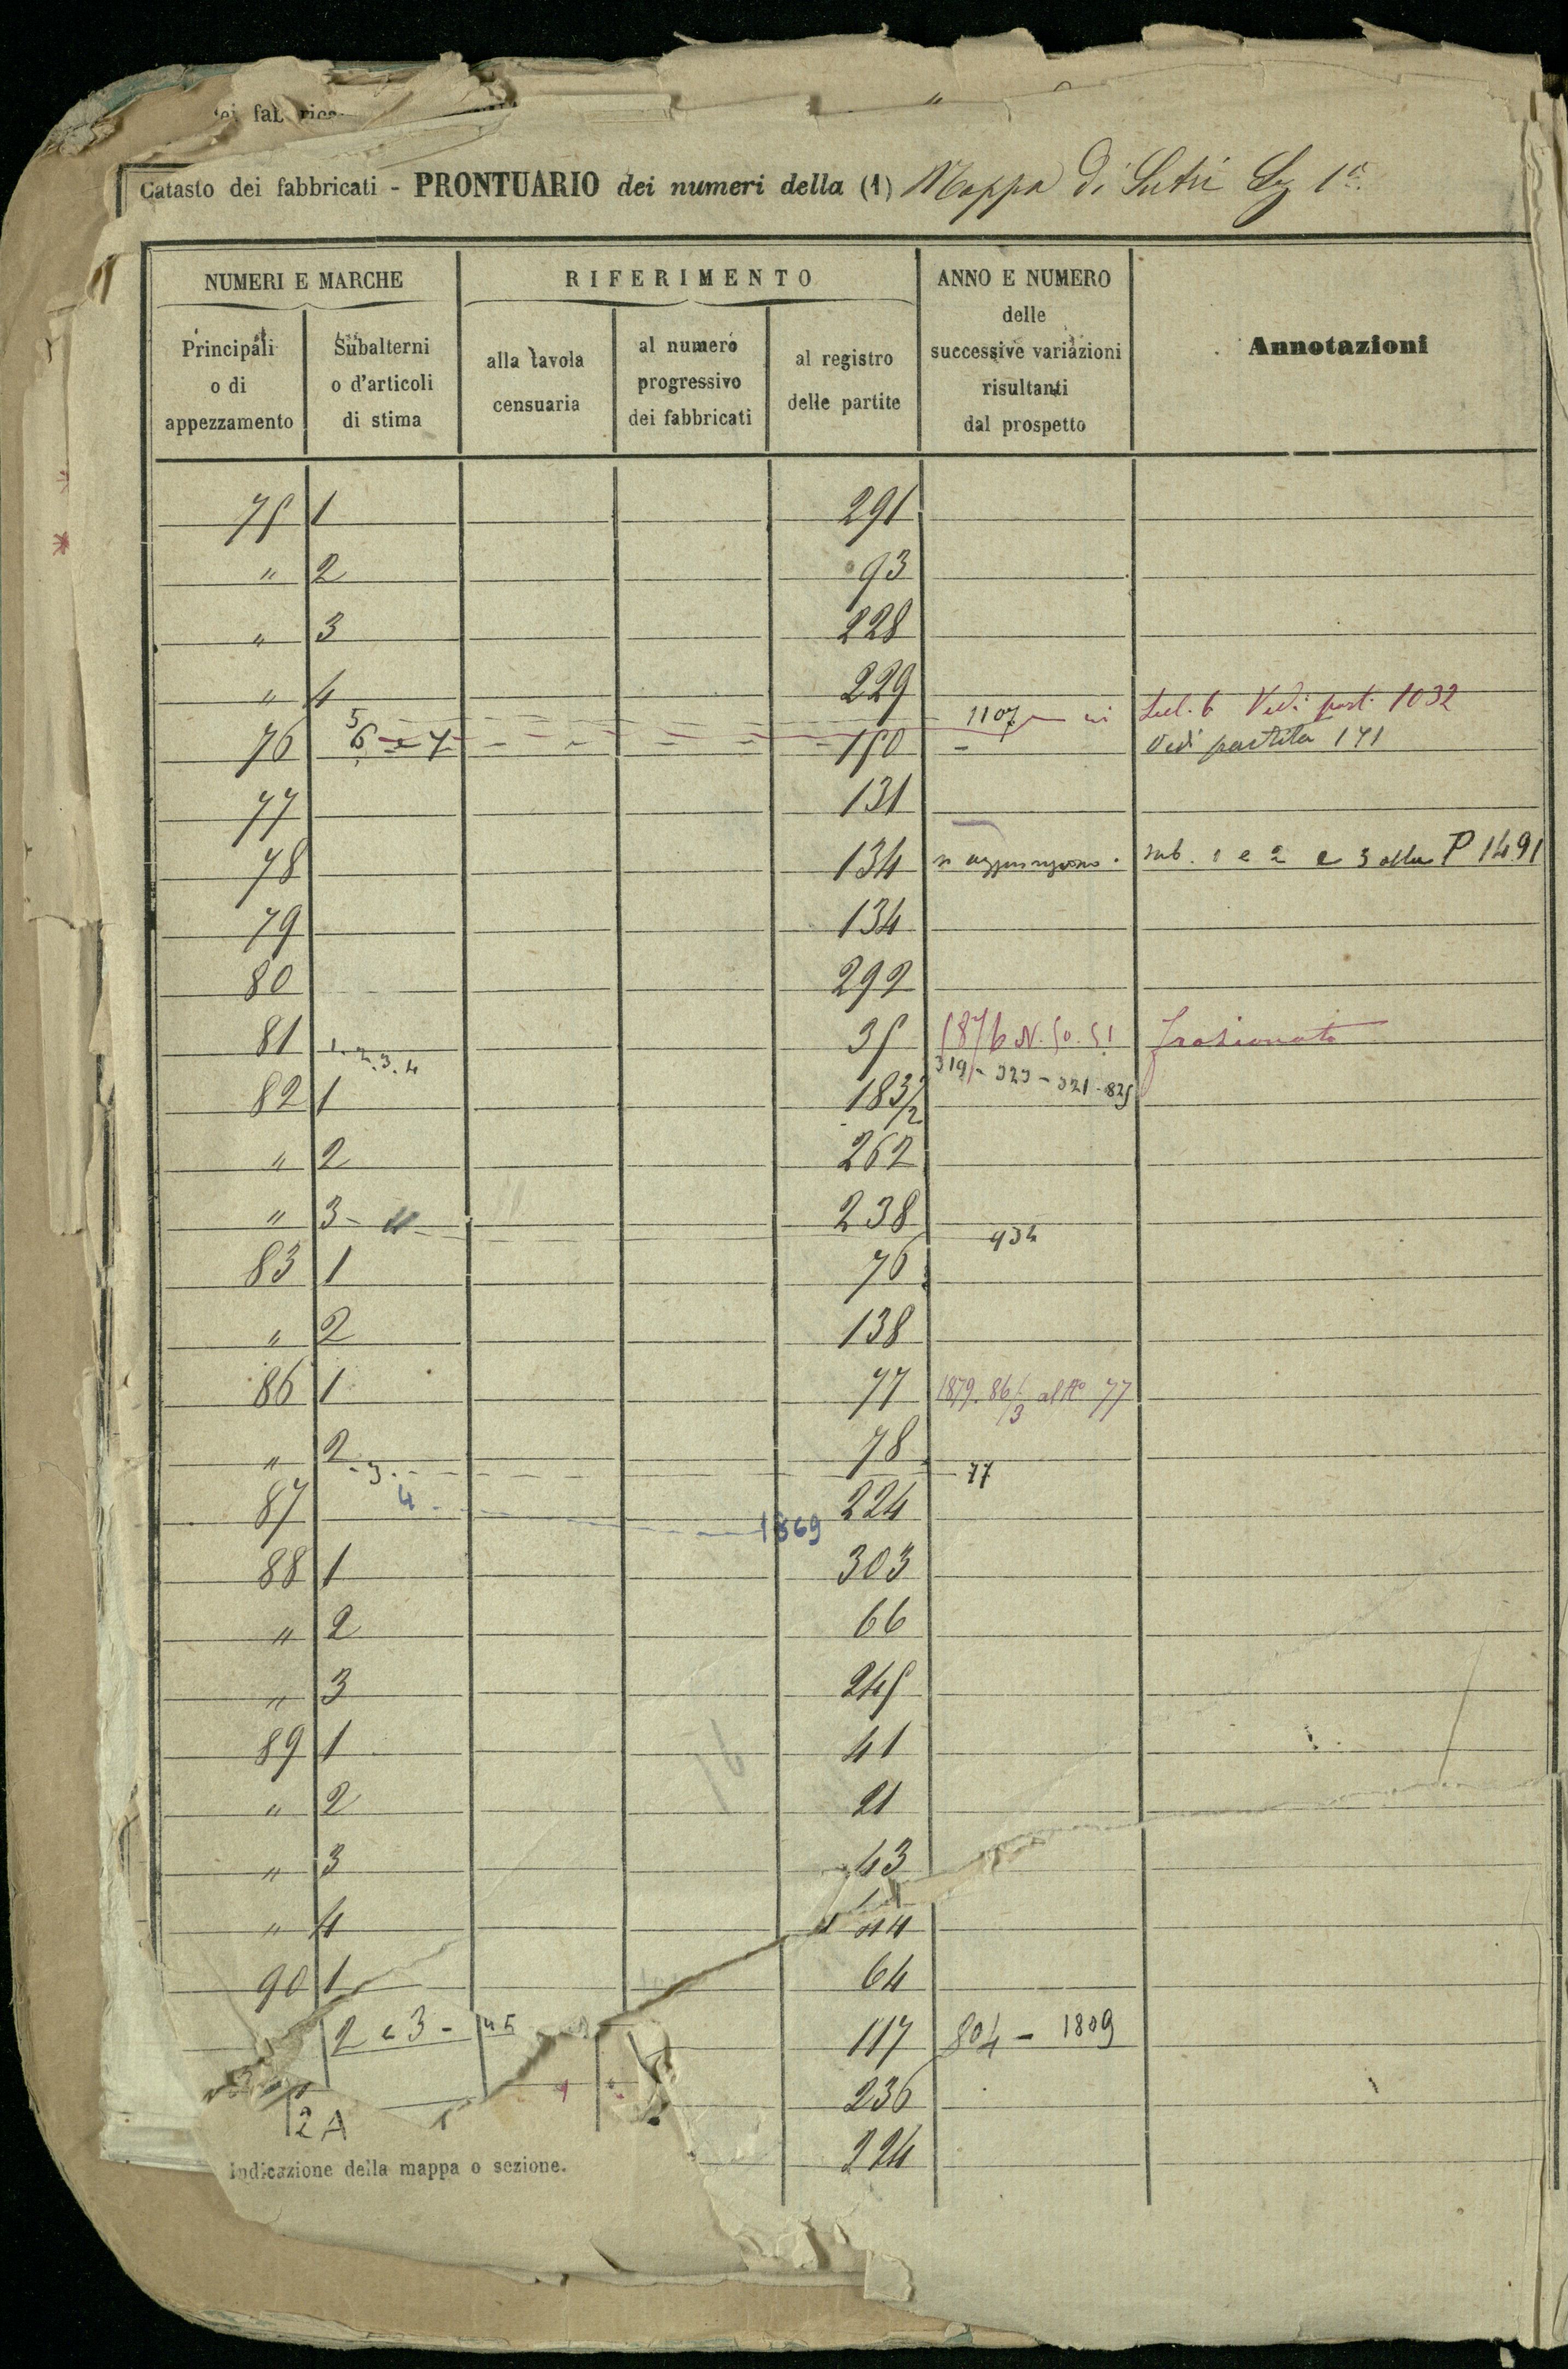 dei fabrica
Catasto dei fabbricati - PRONTUARIO dei numeri della (1) Mappa di Sutri Sez 1a
NUMERI E MARCHE
RIFERIMENTO
ANNO E NUMERO delle successive variazioni risultanti dal prospetto
Annotazioni
Principali o di appezzamento
Subalterni o d'articoli di stima
alla tavola censuaria
al numero progressivo dei fabbricati
al registro delle partite
75 1 291
" 2 93
" 3 228
" 4 229
5 1107 Vedi part. 1032
76 6 e 7 150 Vedi partita 171
77 131
78 134 si aggiungono sub. 1 e 2 e 3 alla P 1491
79 134
80 292
81 1. 2. 3. 4 35 1876 N. 50. 51 frazionato
319 - 323 - 321 - 825
82 1 183/2
" 2 262
" 3 - 4 238
934
83 1 76
" 2 138
86 1 77 1879. 86/3 al No 77
" 2 78
- 3 - 77
87 224
4 - 1369
88 1 303
" 2 66
" 3 245
89 1 41
" 2 21
" 3 43
" 4 44
90 1 64
2 e 3 - 117 804 - 1809
236
2A
224
Indicazione della mappa o sezione.